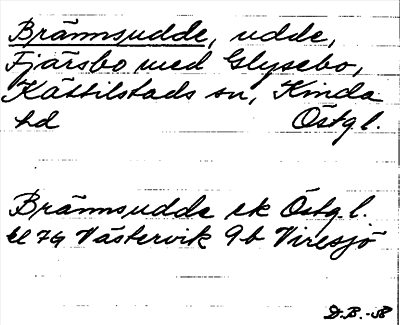 Brännsudde, udde,
Fjärsbo med Glysebo,
Kättilstads sn, Kinda
hd Östg.l.
Brännsudde ek Östg.l.
bl 74 Västervik 9b Viresjö
D.B. -58